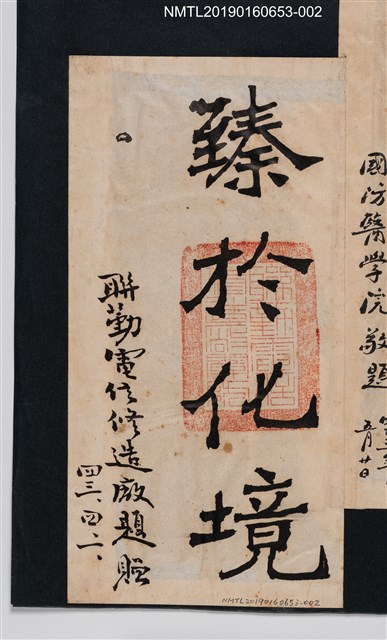 NMTL20190160653-002
國防醫學院敬題
五月廿日
臻於化境
聯勤電信修造廠題贈
四三、四二、
NMTL20190160653-002